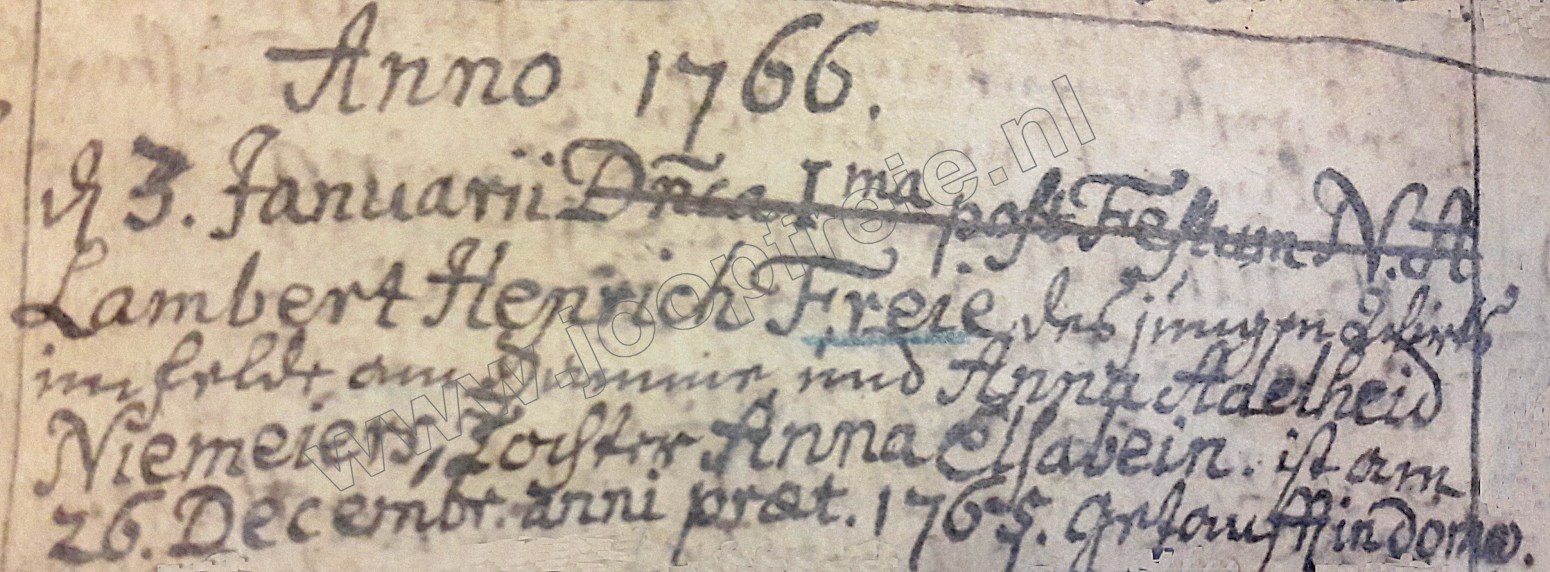 Anno 1766.
d 3. Januarii Dn̄ca I ma post Festum N.A
Lambert Henrich Freie des jungen Wirts
im felde am Dümmer und Anna Adelheid
Niemeiers, Tochter Anna Elsabein. ist am
26. Decembr. anni præt. 1765. getaufft in domo.
www.joopfreie.nl